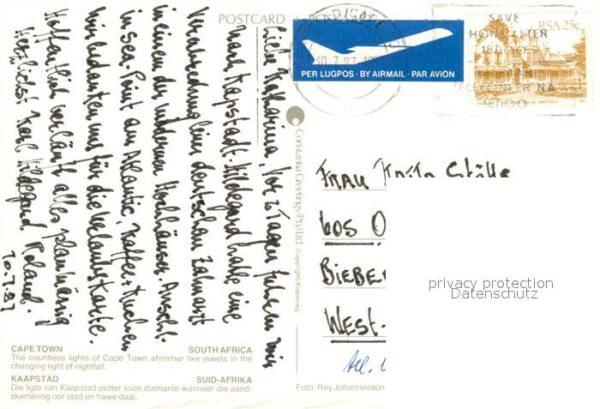 POSTCARD
Liebe Katharina, vor 2 Tagen fuhren wir
nach Kapstadt. Hildegard hatte eine
Verabredung beim deutschen Zahnarzt
in einem der modernen Hochhäuser. Anschl.
in Sea-Point am Atlantic, Kaffee + Kuchen
Wir bedanken uns für die Urlaubskarte.
Hoffentlich verläuft alles planmäßig
Herzlichst Karl Hildegard Roland
10.7.87
CAPE TOWN SOUTH AFRICA
The countless lights of Cape Town shimmer like jewels in the
changing light of nightfall.
KAAPSTAD SUID-AFRIKA
Die ligte van Kaapstad skitter soos diamante wanneer die aand-
skemering oor stad en hawe daal.
Constantia Greetings (Pty) Ltd. Copyright/Kopiereg
Foto: Roy Johannesson
PER LUGPOS · BY AIRMAIL · PAR AVION
SAVE
RSA 25c
FRAU
BIEBE
WEST-
privacy protection
Datenschutz